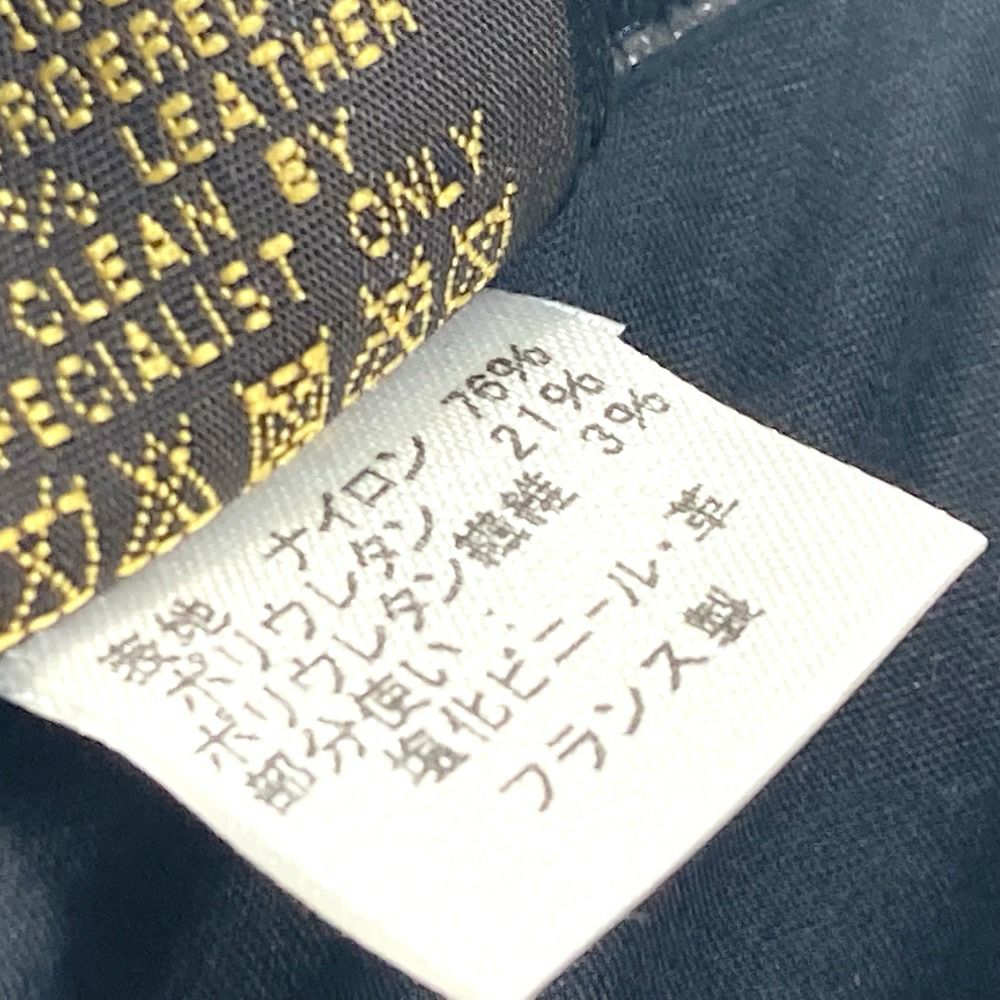 LEATHER
CLEAN BY
SPECIALIST ONLY
表地
ナイロン 76%
ポリウレタン 21%
ポリウレタン繊維 3%
部分使い:
塩化ビニール・革
フランス製